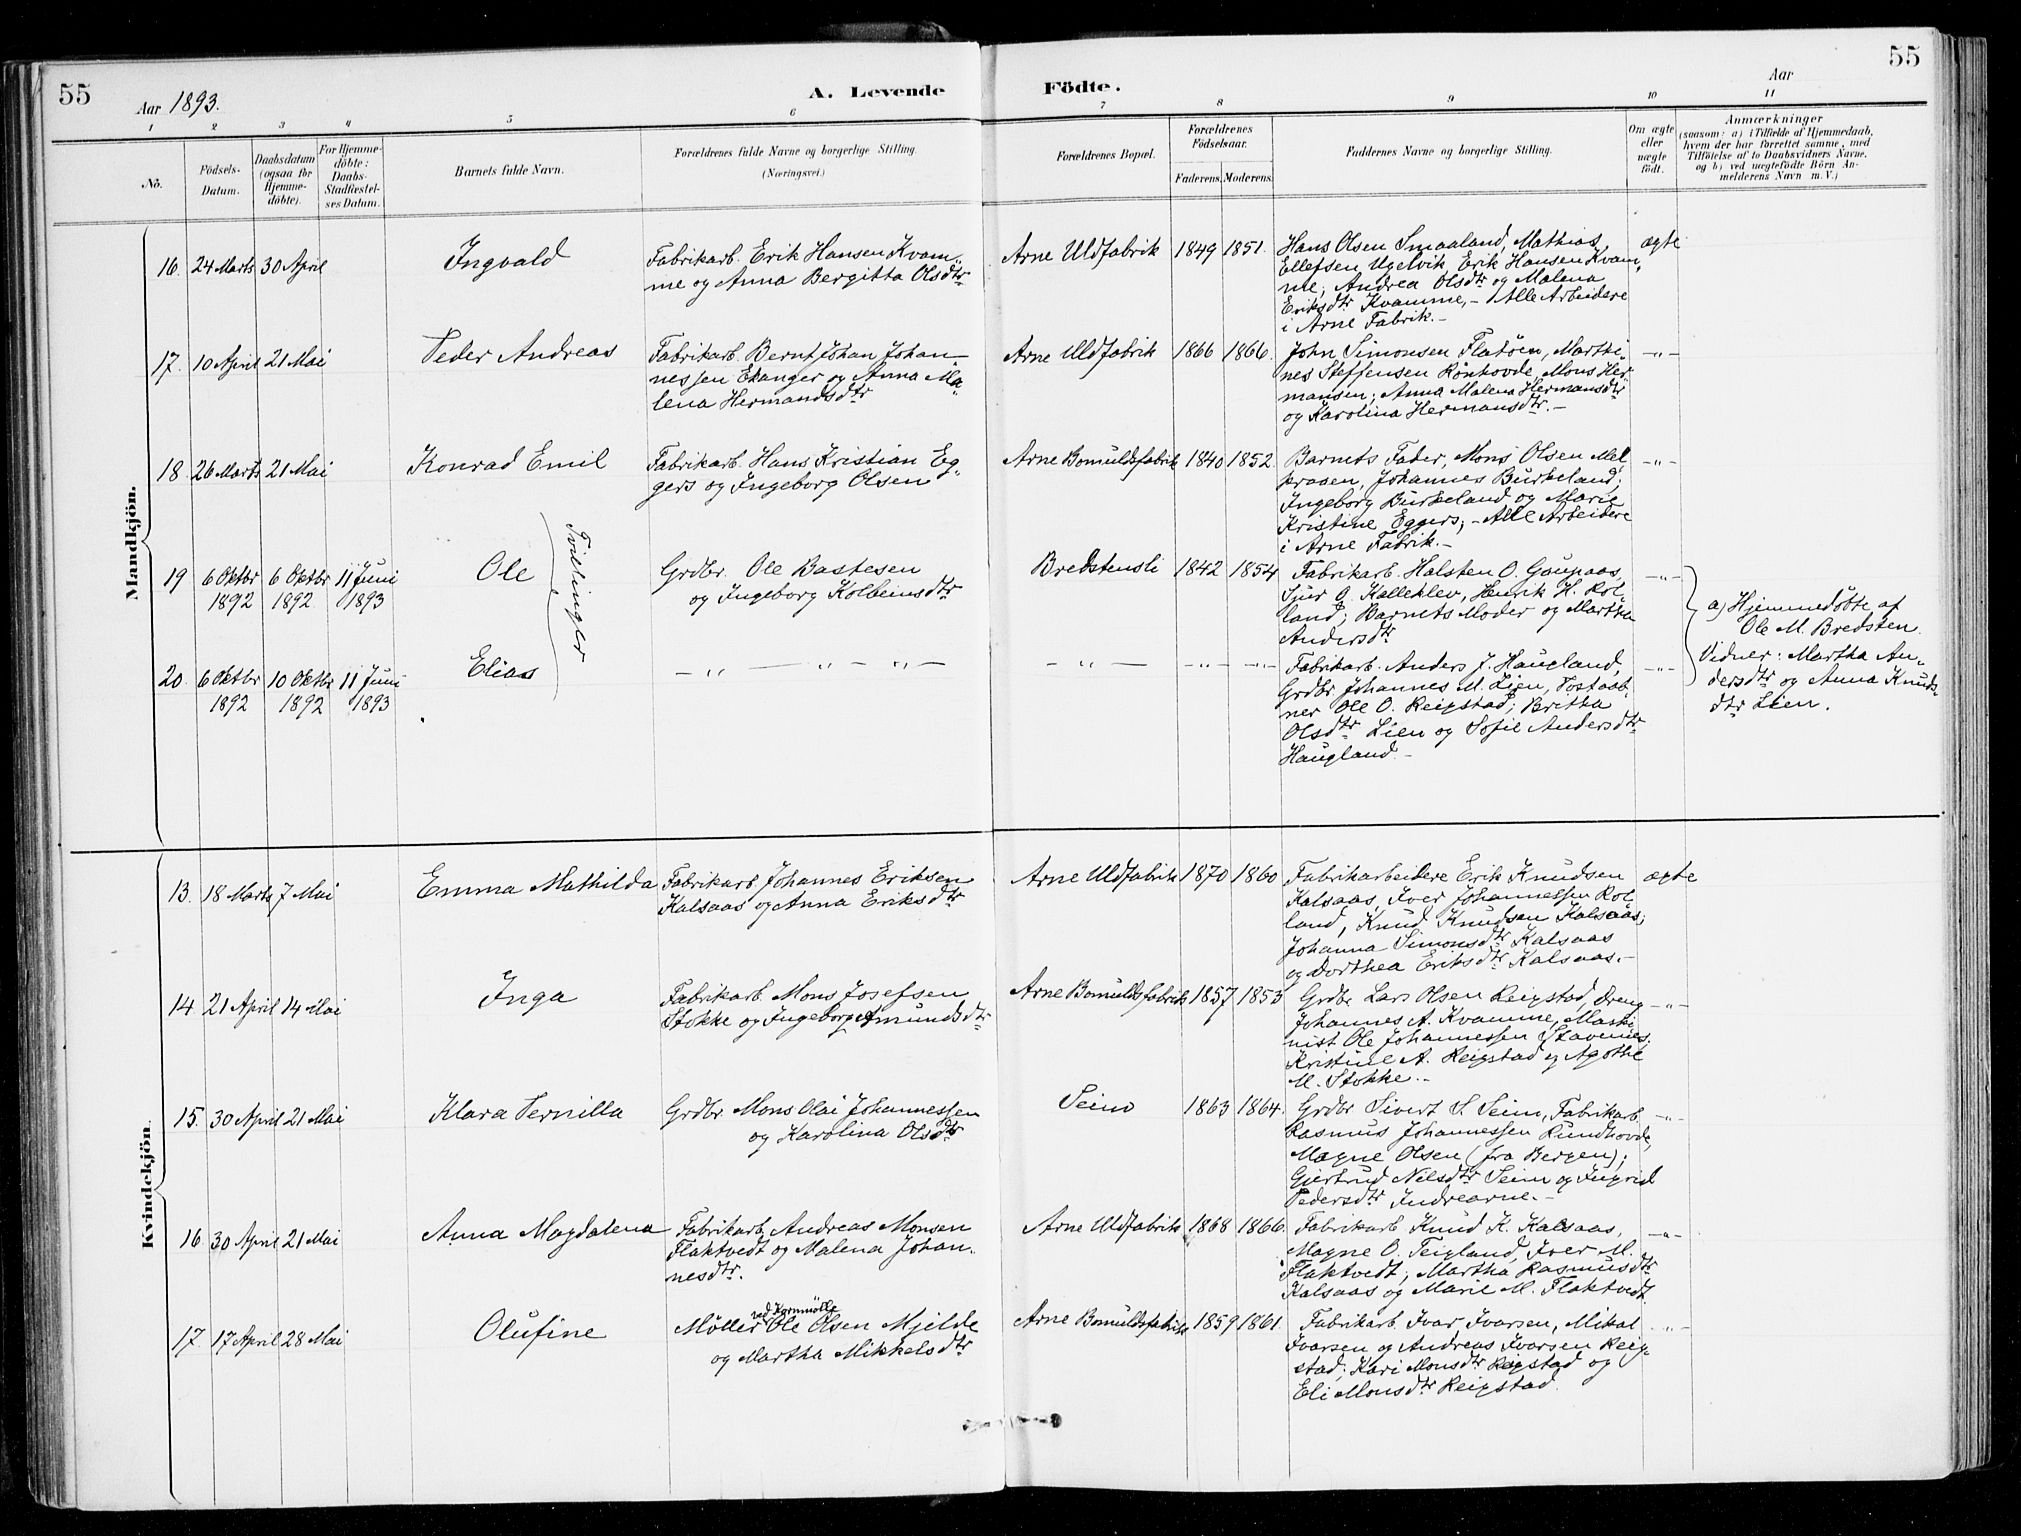 55
Aar 1893.
A. Levende
Födte.
Aar
55
1
2
3
4
5
6
7
8
9
10
11
No.
Födsels-
Datum.
Daabsdatum
(ogsaa for
Hjemme-
döbte).
For Hjemme-
döbte:
Daabs-
Stadfæstel-
ses Datum.
Barnets fulde Navn.
Forældrenes fulde Navne og borgerlige Stilling.
(Næringsvei.)
Forældrenes Bopæl.
Forældrenes
Födselsaar.
Faderens. Moderens.
Faddernes Navne og borgerlige Stilling.
Om ægte
eller
uægte
födt.
Anmærkninger
(saasom: a) i Tilfælde af Hjemmedaab,
hvem der har forrettet samme, med
Tilföielse af to Daabsvidners Navne,
og b) ved uægtefödte Börn An-
melderens Navn m. V.)
Mandkjön.
16. 24 Marts 30 April
Ingvald
Fabrikarb. Erik Hansen Kvam-
me og Anna Bergitta Olsdtr
Arne Uldfabrik 1849 1851.
Hans Olsen Smaaland, Mathias
Ellefsen Ugelvik, Erik Hansen Kvam-
me; Andrea Olsdtr og Malena
Eriksdtr Kvamme, - Alle Arbeidere
i Arne Fabrik.-
ægte
17. 10 April 21 Mai
Peder Andreas
Fabrikarb. Bernt Johan Johan-
nessen Ekanger og Anna Ma-
lena Hermandsdtr
Arne Uldfabrik 1866 1866.
John Simonsen Flatöen, Marthi-
nes Steffensen Rönhovde, Mons Her-
mansen; Anna Malena Hermansdtr
og Karolina Hermansdtr.-
-"-
18. 26 Marts 21 Mai
Konrad Emil
Fabrikarb. Hans Kristian Eg-
gers og Ingeborg Olsen
Arne Bomuldsfabrik 1840 1852.
Barnets Fader, Mons Olsen Mel-
kraaen, Johannes Burkeland;
Ingeborg Burkeland og Marie
Kristine Eggers; - Alle Arbeidere
i Arne Fabrik.-
-"-
19 6 Oktbr 1892 6 Oktbr 1892 11 Juni 1893
Ole
Tvillinger
Grdbr. Ole Bastesen
og Ingeborg Kolbeinsdtr
Bredstensli 1842 1854
Fabrikarb. Halsten O. Gaupaas,
Sjur O. Kalleklev, Henrik H. Rol-
land; Barnets Moder og Martha
Andersdtr
-"-
a) Hjemmedöbte af
Ole M. Bredsten.
Vidner: Martha An-
dersdtr og Anna Knuds-
dtr Lien.
20. 6 Oktbr 1892 10 Oktbr 1892 11 Juni 1893
Elias
- " - " - " -
- " - -"- -"-
Fabrikarb. Anders J. Haugland,
Grdbr Johannes M. Lien, Postaab-
ner Ole O. Reigstad; Britha
Olsdtr Lien og Sofie Andersdtr
Haugland.-
-"-
Kvindekjön.
13. 18 Marts 7 Mai
Emma Mathilda
Fabrikarb. Johannes Eriksen
Kalsaas og Anna Eriksdtr
Arne Uldfabrik 1870 1860
Fabrikarbeidere Erik Knudsen
Kalsaas, Iver Johannessen Rol-
land, Knud Knudsen Kalsaas;
Johanna Simonsdtr Kalsaas
og Dorthea Eriksdtr Kalsaas.-
ægte
14. 21 April 14 Mai
Inga
Fabrikarb. Mons Josefsen
Stokke og Ingeborg Amundsdtr
Arne Bomuldsfabrik 1857 1853
Grdbr Lars Olsen Reigstad, Dreng
Johannes A. Kvamme, Maski-
nist Ole Johannessen Stavenes;
Kristine A. Reigstad og Agothe
M. Stokke.-
-"-
15. 30 April 21 Mai
Klara Pernilla
Grdbr Mons Olai Johannessen
og Karolina Olsdtr
Seim 1863 1864.
Grdbr Sivert S. Seim, Fabrikarb.
Rasmus Johannessen Rundhovde,
Magne Olsen (fra Bergen);
Gjertrud Nilsdtr Seim og Ingrid
Pedersdtr Indrearne.-
-"-
16. 30 April 21 Mai
Anna Magdalena
Fabrikarb. Andreas Monsen
Flaktvedt og Malena Johan-
nesdtr.
Arne Uldfabrik 1868 1866.
Fabrikarb. Knud K. Kalsaas,
Magne O. Teigland, Iver M.
Flaktvedt; Martha Rasmusdtr
Kalsaas og Marie M. Flaktvedt.
-"-
17. 17 April 28 Mai
Olufine
ved Kornmölle
Møller Ole Olsen Mjelde
og Martha Mikkelsdtr
Arne Bomuldsfabrik 1859 1861.
Fabrikarb. Ivar Ivarsen, Mikal
Ivarsen og Andreas Ivarsen Reig-
stad; Kari Monsdtr Reigstad og
Eli Monsdtr Reigstad.
-"-